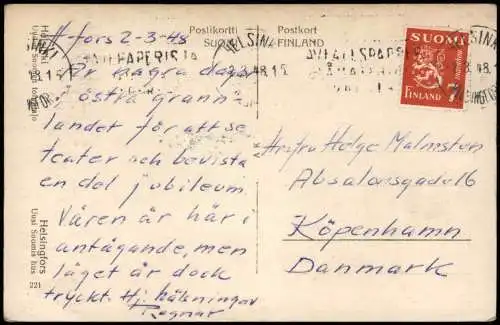 H-fors 2-3-48
Är några dagar
i östra grann
landet för att se
teater och bevista
en del jubileum.
Våren är här i
antågande, men
läget är dock
tryckt. Hj. hälsningar
Ragnar
Postikortti
SUOMI
Postkort
FINLAND
HELSIN
SUOMI
FINLAND
7
markkaa
Herr o Fru Helge Malmsten
Absalonsgade 16
Köpenhamn
Danmark
Helsinki
Uusi Suomi'n toimitalo
Helsingfors
Uusi Suomis hus
221